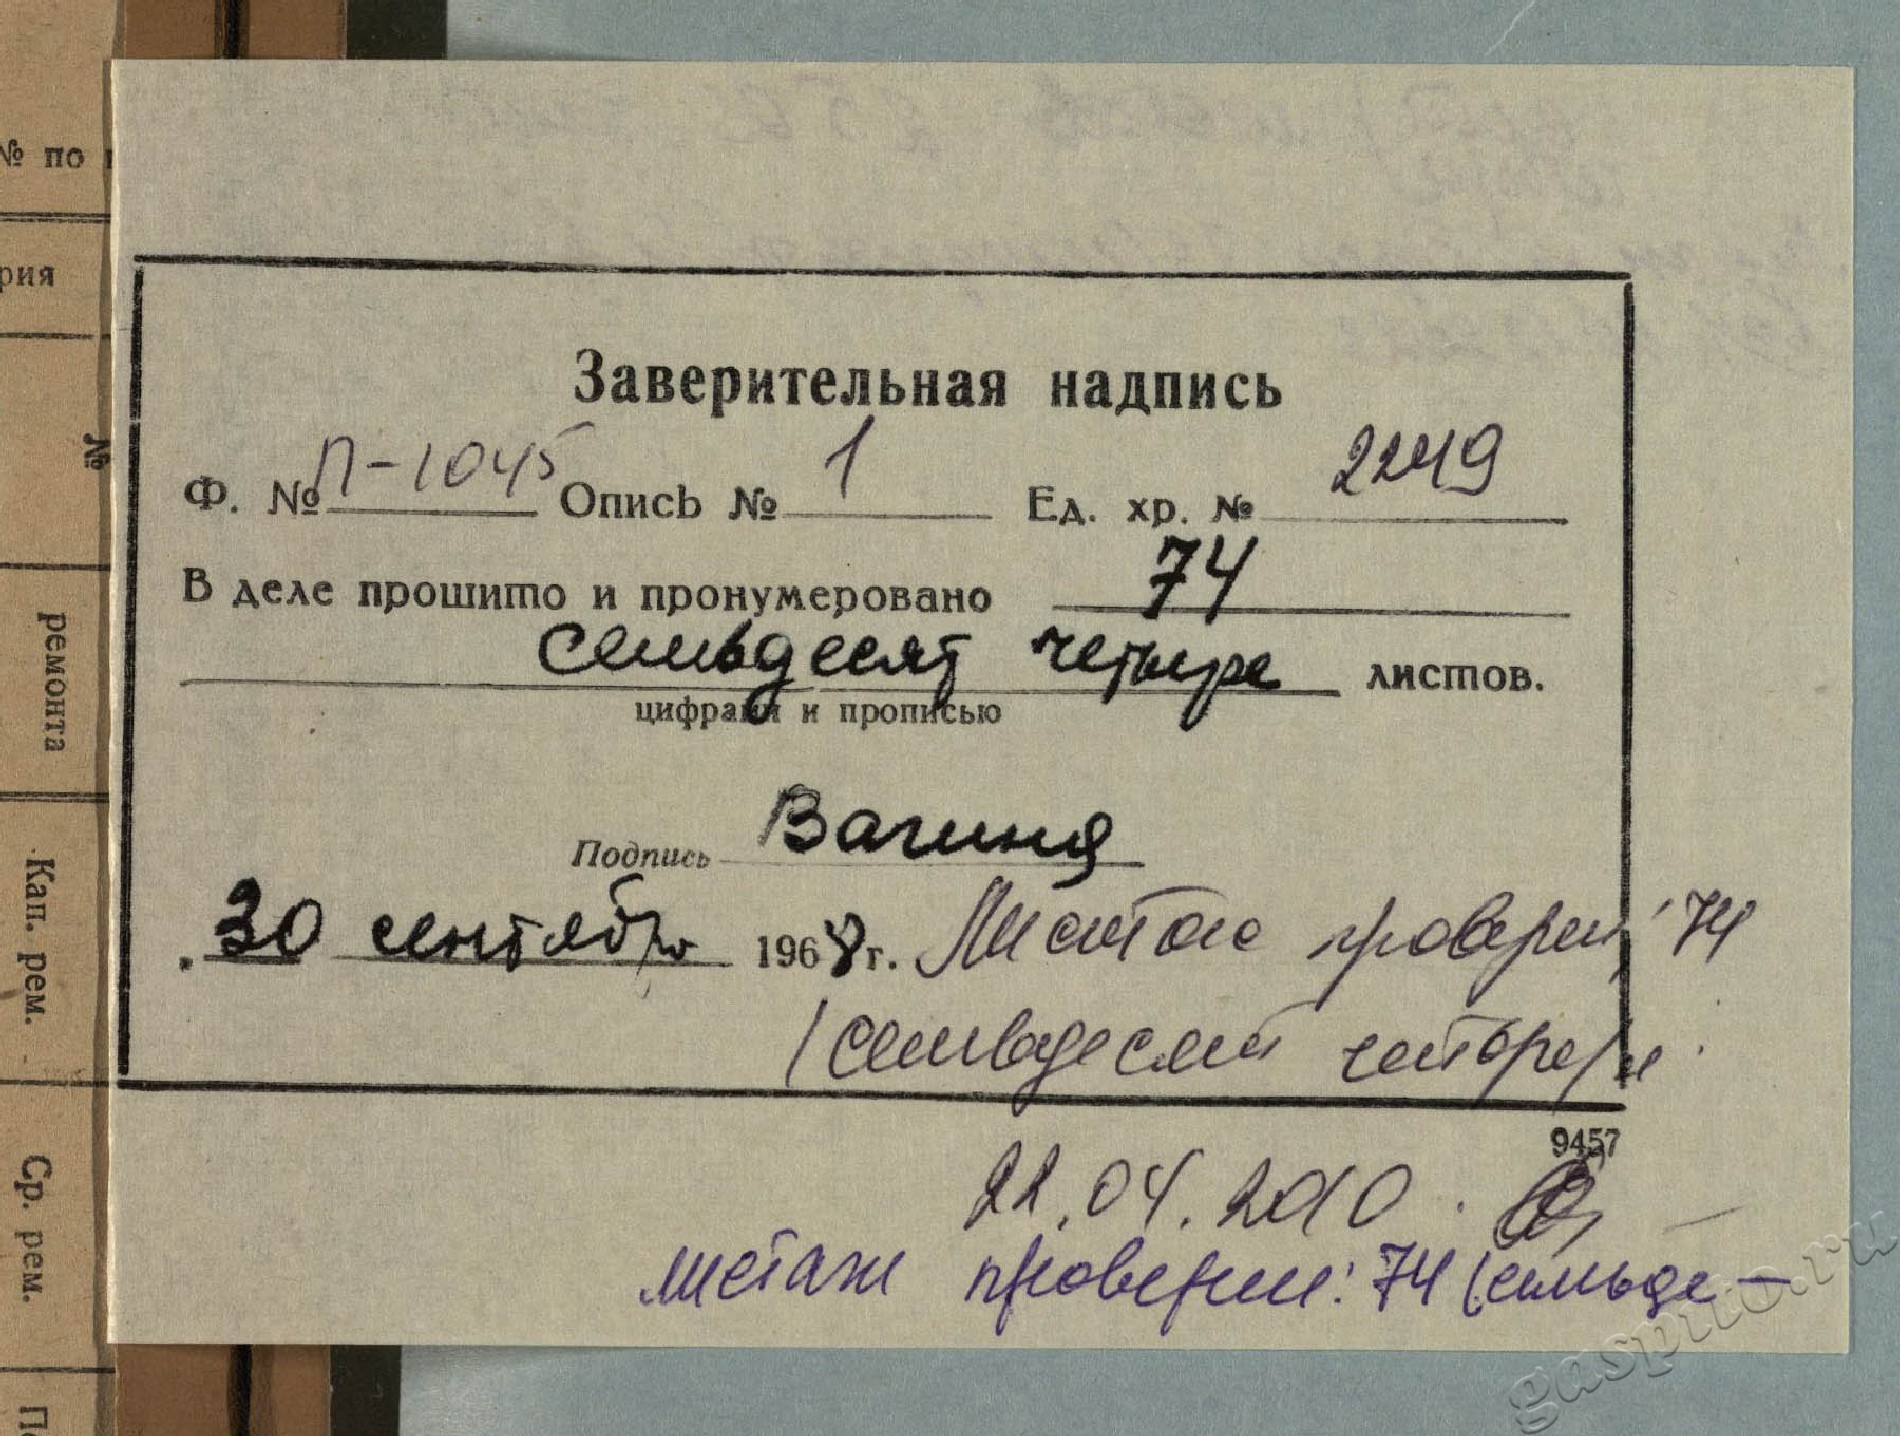 № по
рия
№
ремонта
Кап. рем.
Ср. рем.
Заверительная надпись
Ф. № П-1045 Опись № 1 Ед. хр. № 2249
В деле прошито и пронумеровано 74
семьдесят четыре листов.
цифрами и прописью
Подпись Вагина
30 сентября 1968 г. Листаж проверен, 74
(семьдесят четыре) л.
9457
22.04.2010.
листаж проверен: 74 (семьде-
gaspito.ru